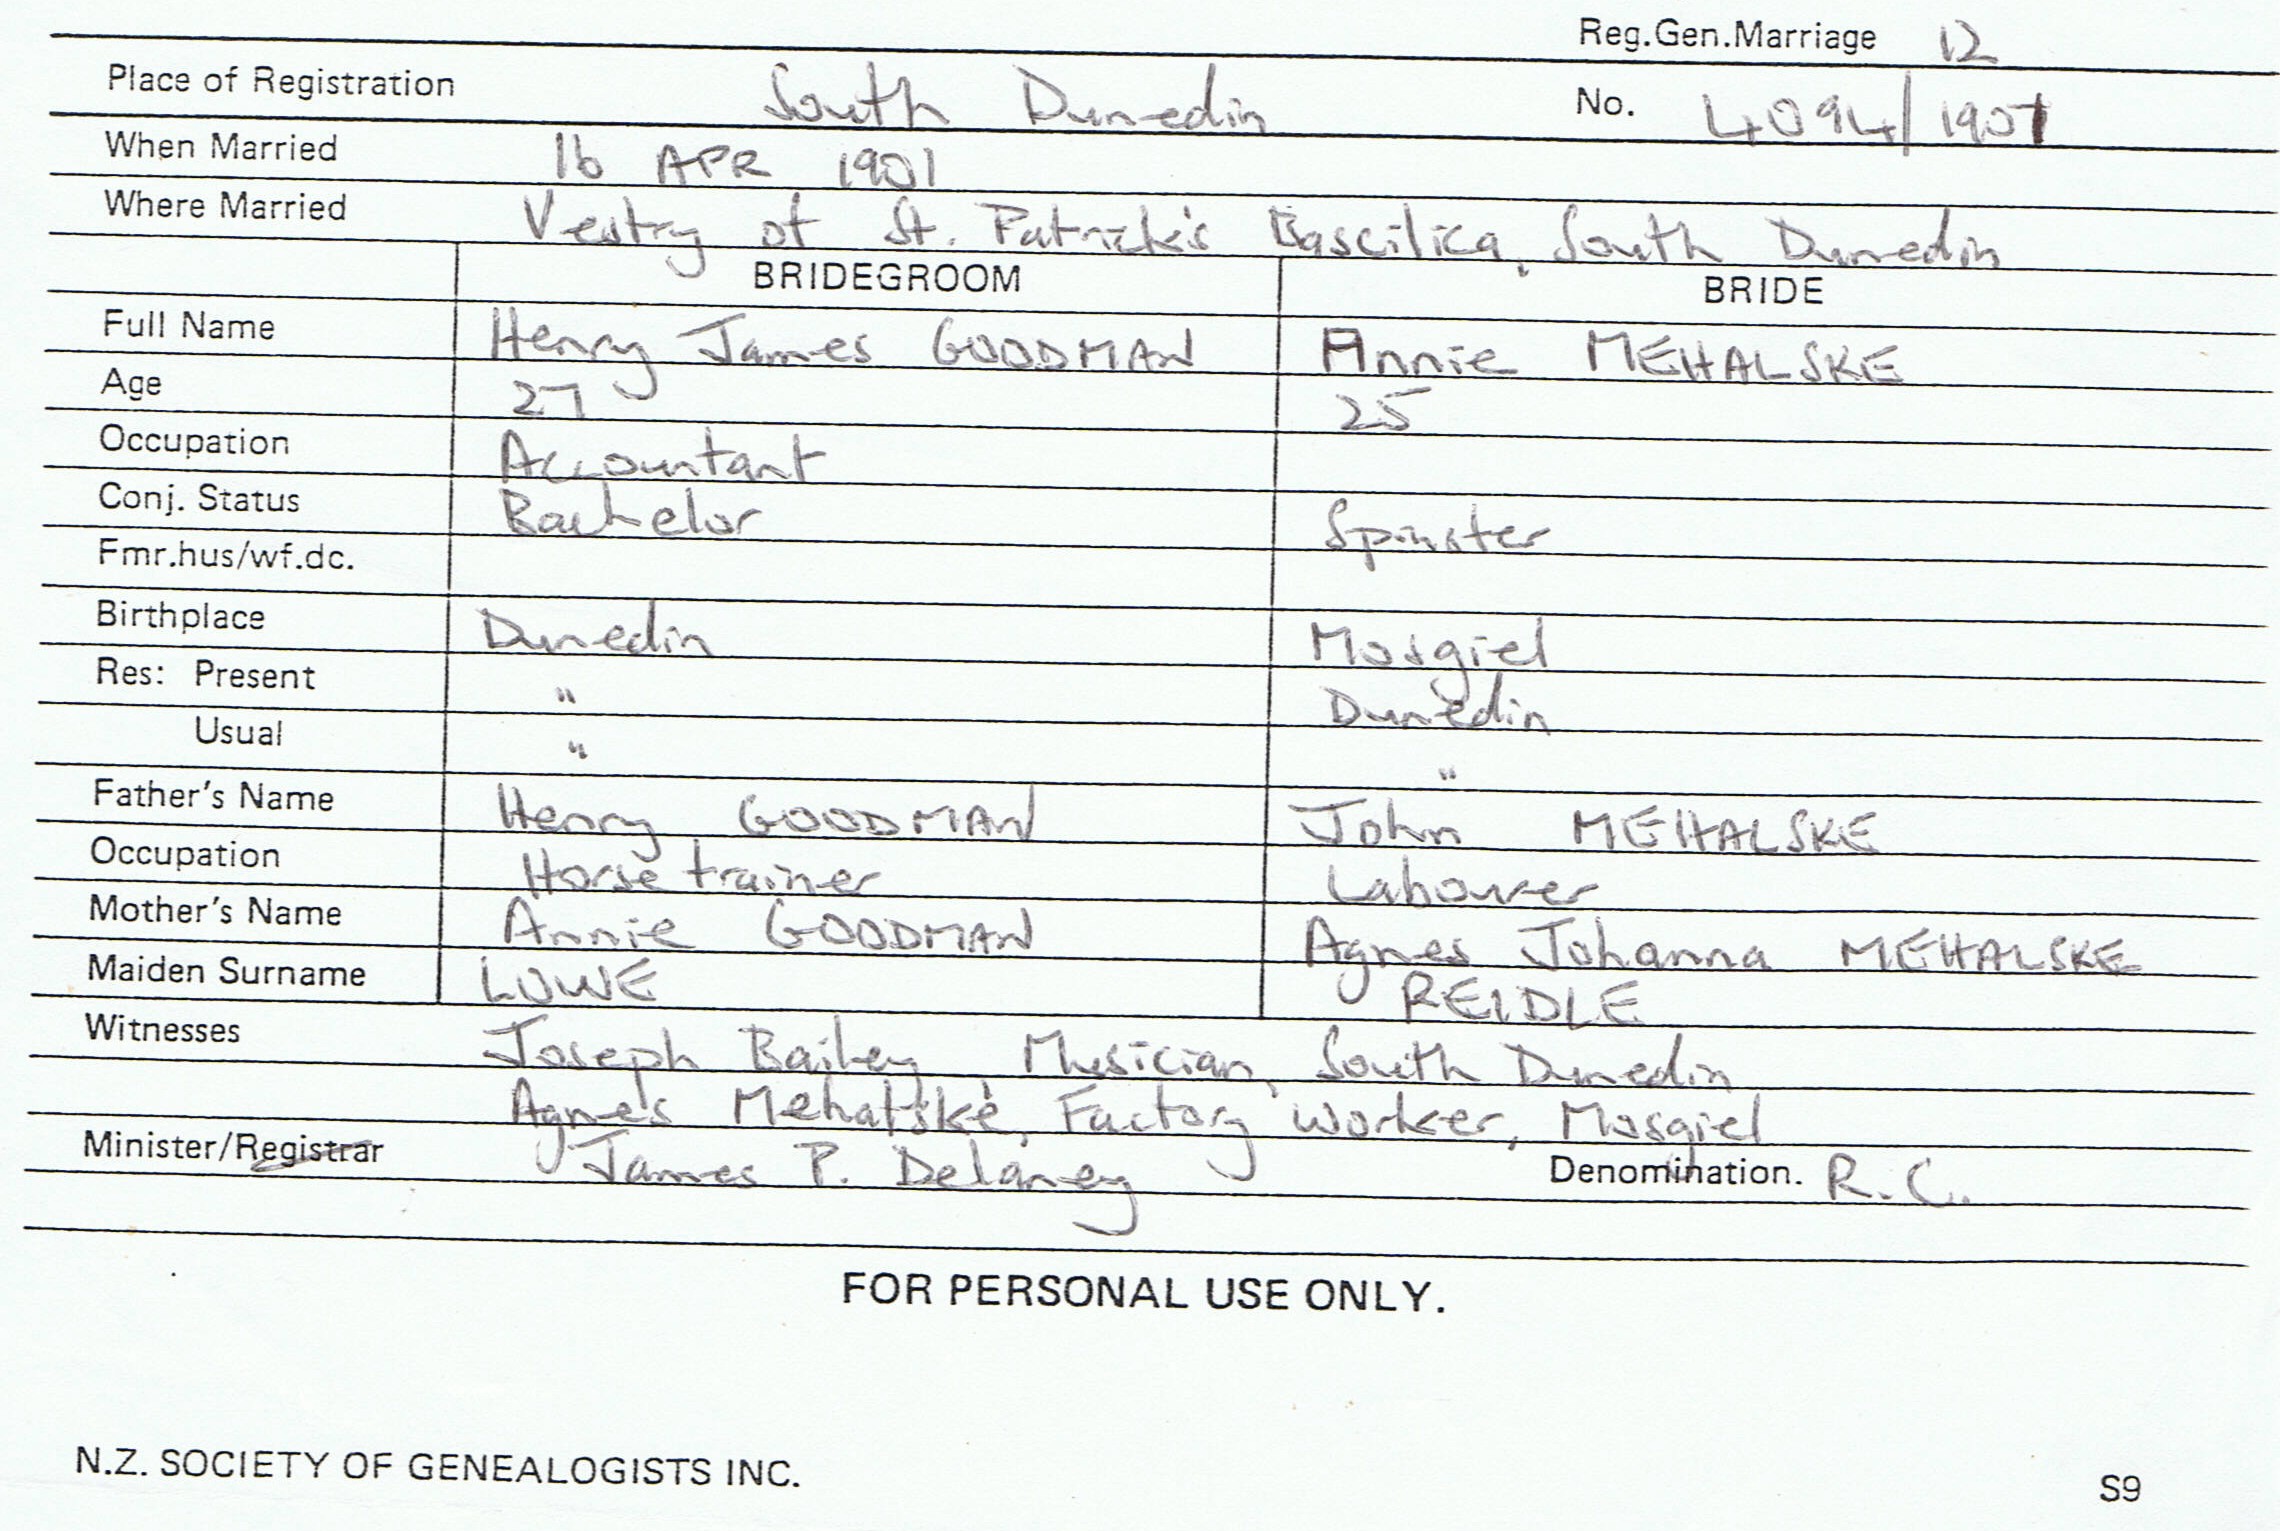 Reg.Gen.Marriage 12
Place of Registration South Dunedin No. 4094/1901
When Married 16 APR 1901
Where Married Vestry of St. Patrick's Bascilica, South Dunedin
BRIDEGROOM BRIDE
Full Name Henry James GOODMAN Annie MEHALSKE
Age 27 25
Occupation Accountant
Conj. Status Bachelor Spinster
Fmr.hus/wf.dc.
Birthplace Dunedin Mosgiel
Res: Present " Dunedin
Usual " "
Father's Name Henry GOODMAN John MEHALSKE
Occupation Horse trainer Labourer
Mother's Name Annie GOODMAN Agnes Johanna MEHALSKE
Maiden Surname LOWE REIDLE
Witnesses Joseph Bailey, Musician, South Dunedin
Agnes Mehalske, Factory worker, Mosgiel
Minister/Registrar James P. Delaney Denomination. R.C.
FOR PERSONAL USE ONLY.
N.Z. SOCIETY OF GENEALOGISTS INC. S9